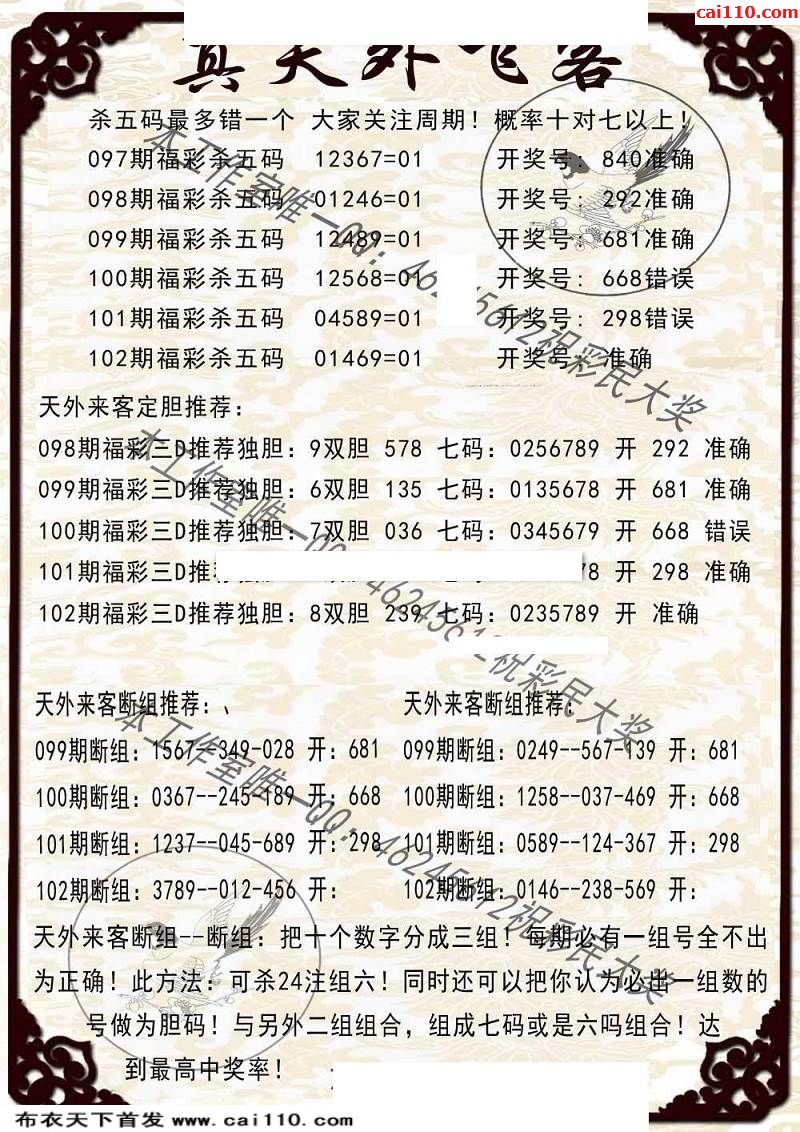 cai110.com
真天外飞客
杀五码最多错一个 大家关注周期！概率十对七以上！
097期福彩杀五码 12367=01 开奖号：840准确
098期福彩杀五码 01246=01 开奖号：292准确
099期福彩杀五码 12489=01 开奖号：681准确
100期福彩杀五码 12568=01 开奖号：668错误
101期福彩杀五码 04589=01 开奖号：298错误
102期福彩杀五码 01469=01 开奖号：准确
天外来客定胆推荐：
098期福彩三D推荐独胆：9双胆 578 七码：0256789 开 292 准确
099期福彩三D推荐独胆：6双胆 135 七码：0135678 开 681 准确
100期福彩三D推荐独胆：7双胆 036 七码：0345679 开 668 错误
101期福彩三D推荐独胆 78 开 298 准确
102期福彩三D推荐独胆：8双胆 239 七码：0235789 开 准确
天外来客断组推荐：、 天外来客断组推荐：
099期断组：1567--349-028 开：681 099期断组：0249--567-139 开：681
100期断组：0367--245-189 开：668 100期断组：1258--037-469 开：668
101期断组：1237--045-689 开：298 101期断组：0589--124-367 开：298
102期断组：3789--012-456 开： 102期断组：0146--238-569 开：
天外来客断组--断组：把十个数字分成三组！每期必有一组号全不出
为正确！此方法：可杀24注组六！同时还可以把你认为必出一组数的
号做为胆码！与另外二组组合，组成七码或是六吗组合！达
到最高中奖率！
本工作室唯一QQ：46245612祝彩民大奖
本工作室唯一QQ：46245612祝彩民大奖
本工作室唯一QQ：46245612祝彩民大奖
布衣天下首发 www.cai110.com